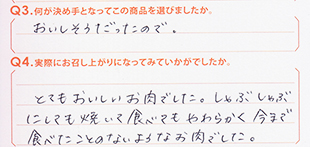 Q3.何が決め手となってこの商品を選びましたか。
おいしそうだったので。
Q4.実際にお召し上がりになってみていかがでしたか。
とてもおいしいお肉でした。しゃぶしゃぶ
にしても焼いて食べてもやわらかく今まで
食べたことのないようなお肉でした。